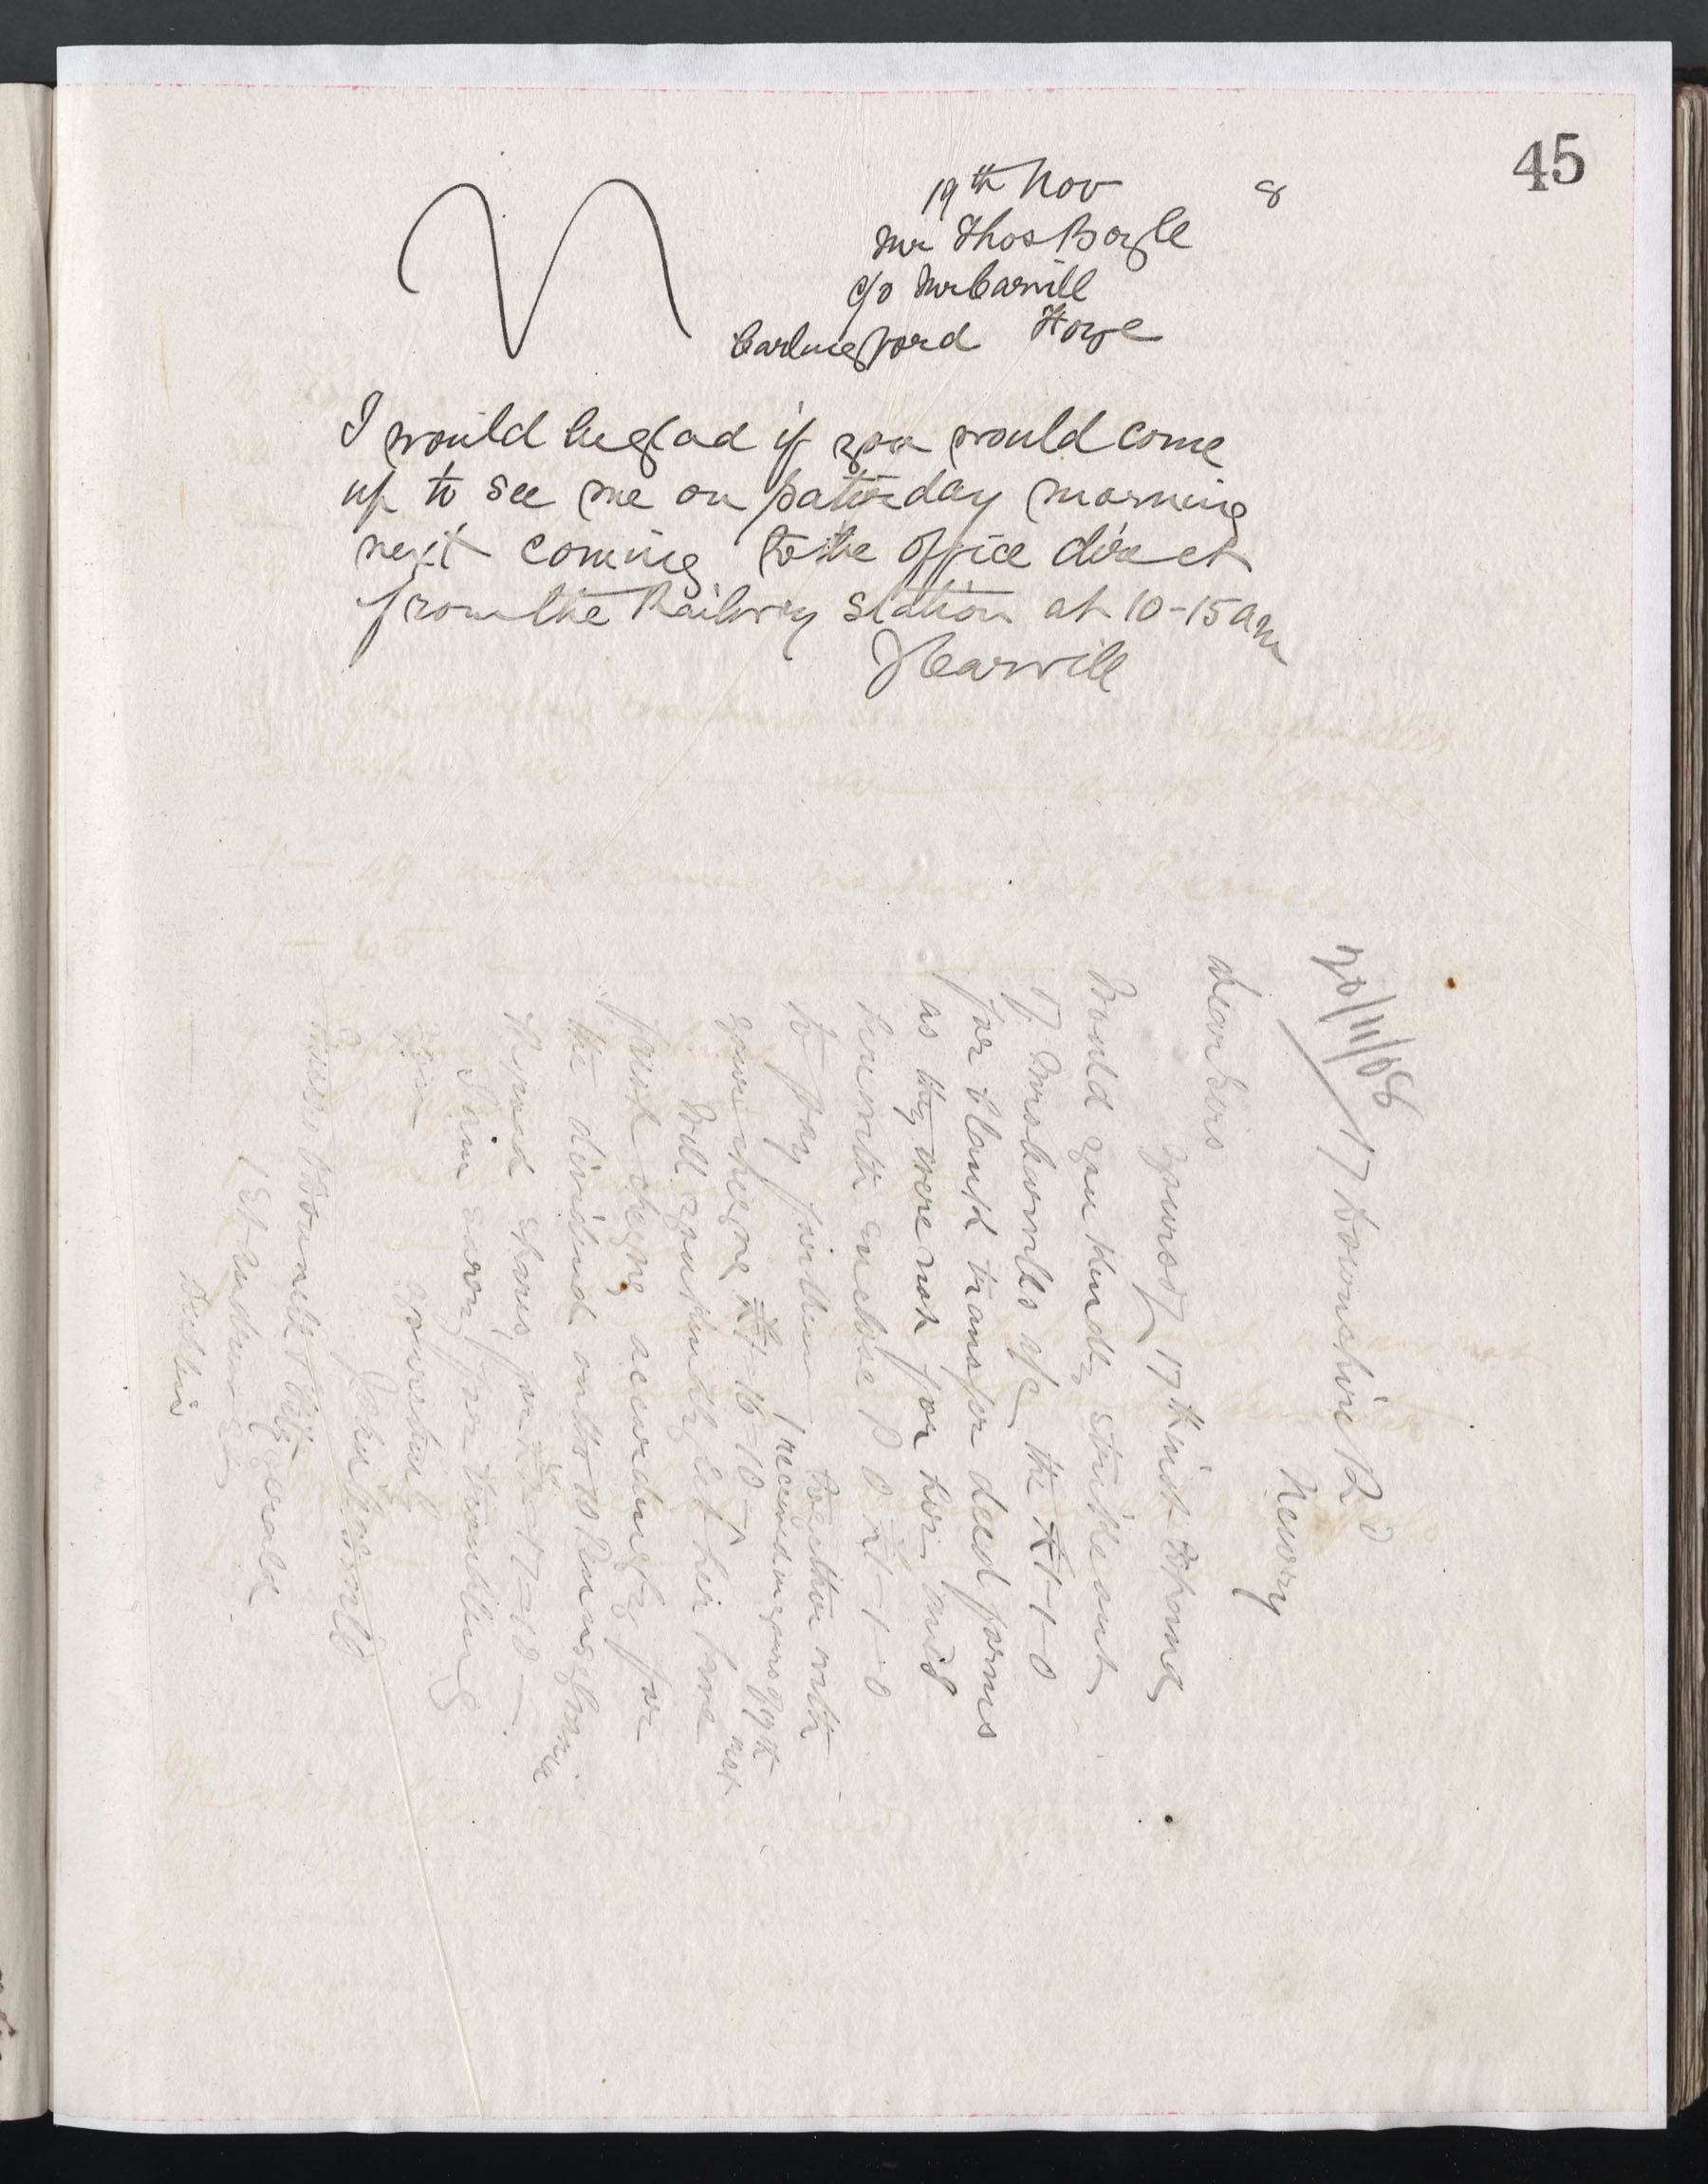 45
19th Nov 8
Mr Thos Boyle
c/o Mr Carvill
Carlingford
I would be glad if you would come
up to see me on Saturday morning
next coming to the office direct
from the Railway Station at 10-15 am
JCarvill
20/11/08
17 Downshire Rd
Newry
Dear Sirs
Yours of 17th inst to hand
Would you kindly strike out
of Mrs Carvills a/c the £1-1-0
for blank transfer deed forms
as they were not for her and
herewith enclose P O £1-1-0
to pay for them
together with
your cheque £4-16-10
Will you kindly let her have
fresh cheque accordingly for
the dividend on the
shares for
I am sorry for troubling
you
Yours truly
John Carvill
Dublin